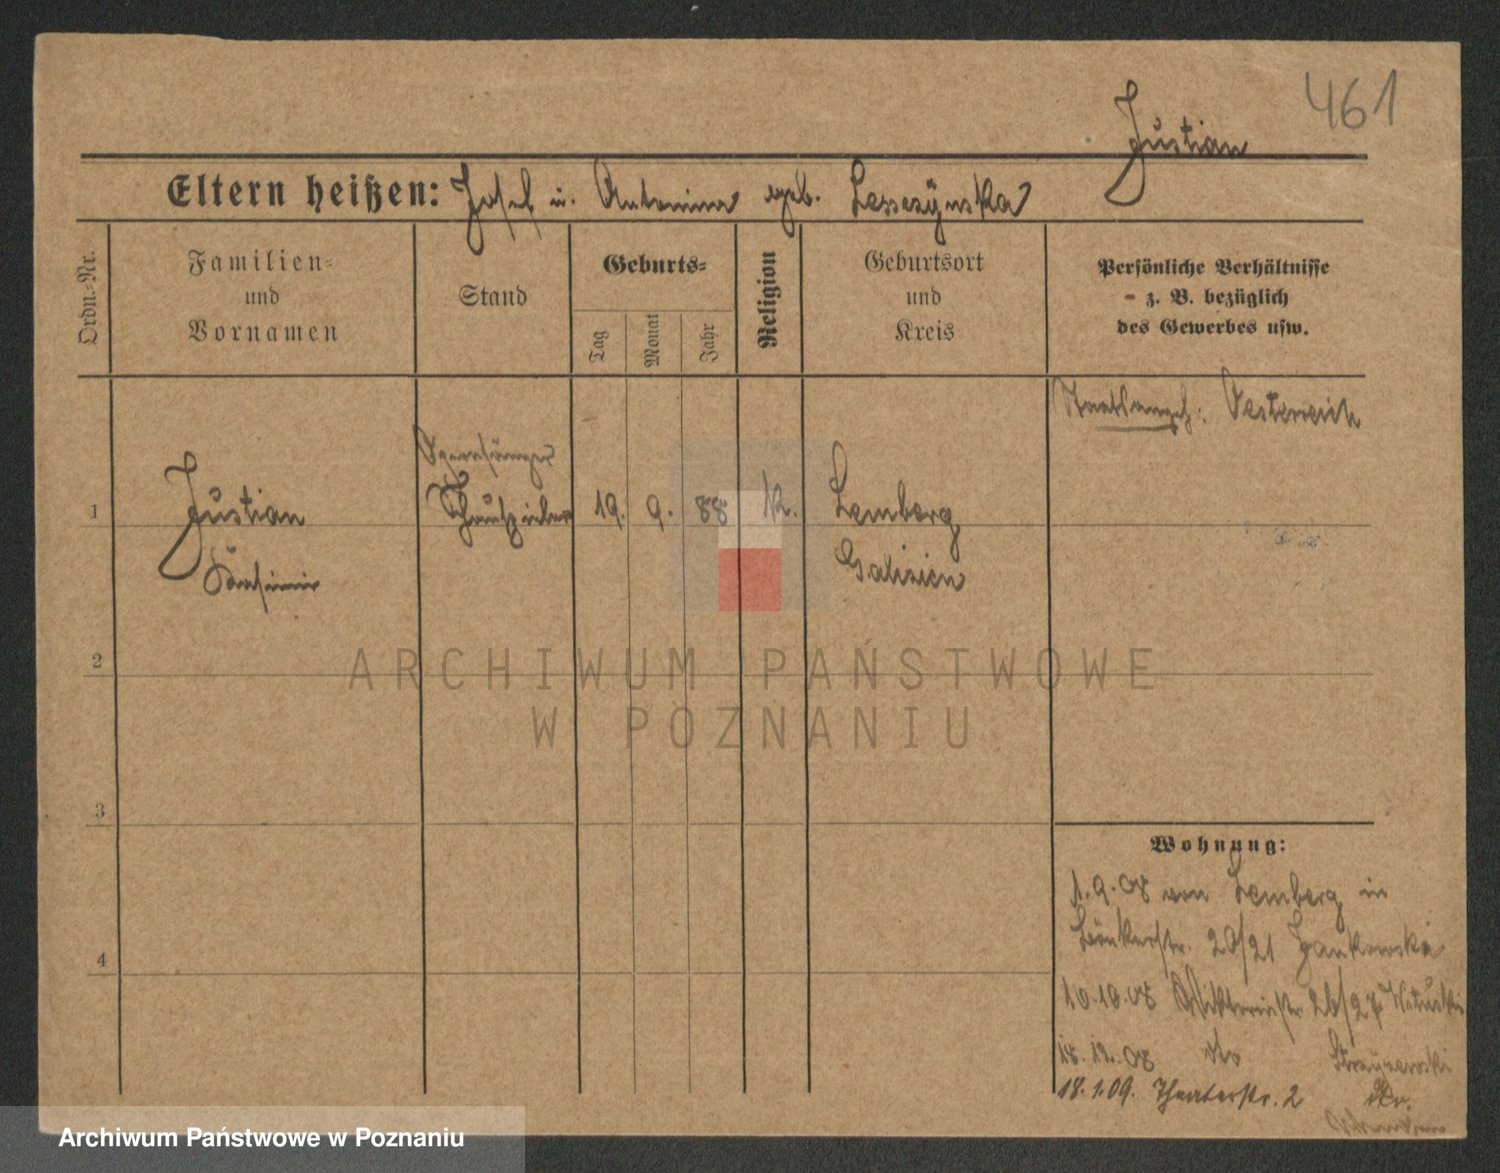 461
Justian
Eltern heißen: Josef u. Antonina geb. Leszczynska
Ordn.-Nr.
Familien-
und
Vornamen
Stand
Geburts-
Tag
Monat
Jahr
Religion
Geburtsort
und
Kreis
Persönliche Verhältnisse
z. B. bezüglich
des Gewerbes usw.
Staatsangeh: Oesterreich
Opernsänger
1
Justian
Schauspieler
19.
9.
88
k.
Lemberg
Kasimir
Galizien
ARCHIWUM PAŃSTWOWE
2
W POZNANIU
3
Wohnung:
1.9.08 von Lemberg in
20/21 Jankowska
4
10.10.08 Viktoriastr. 26/27
18.12.08 dto
18.1.09. Theaterstr. 2
Archiwum Państwowe w Poznaniu